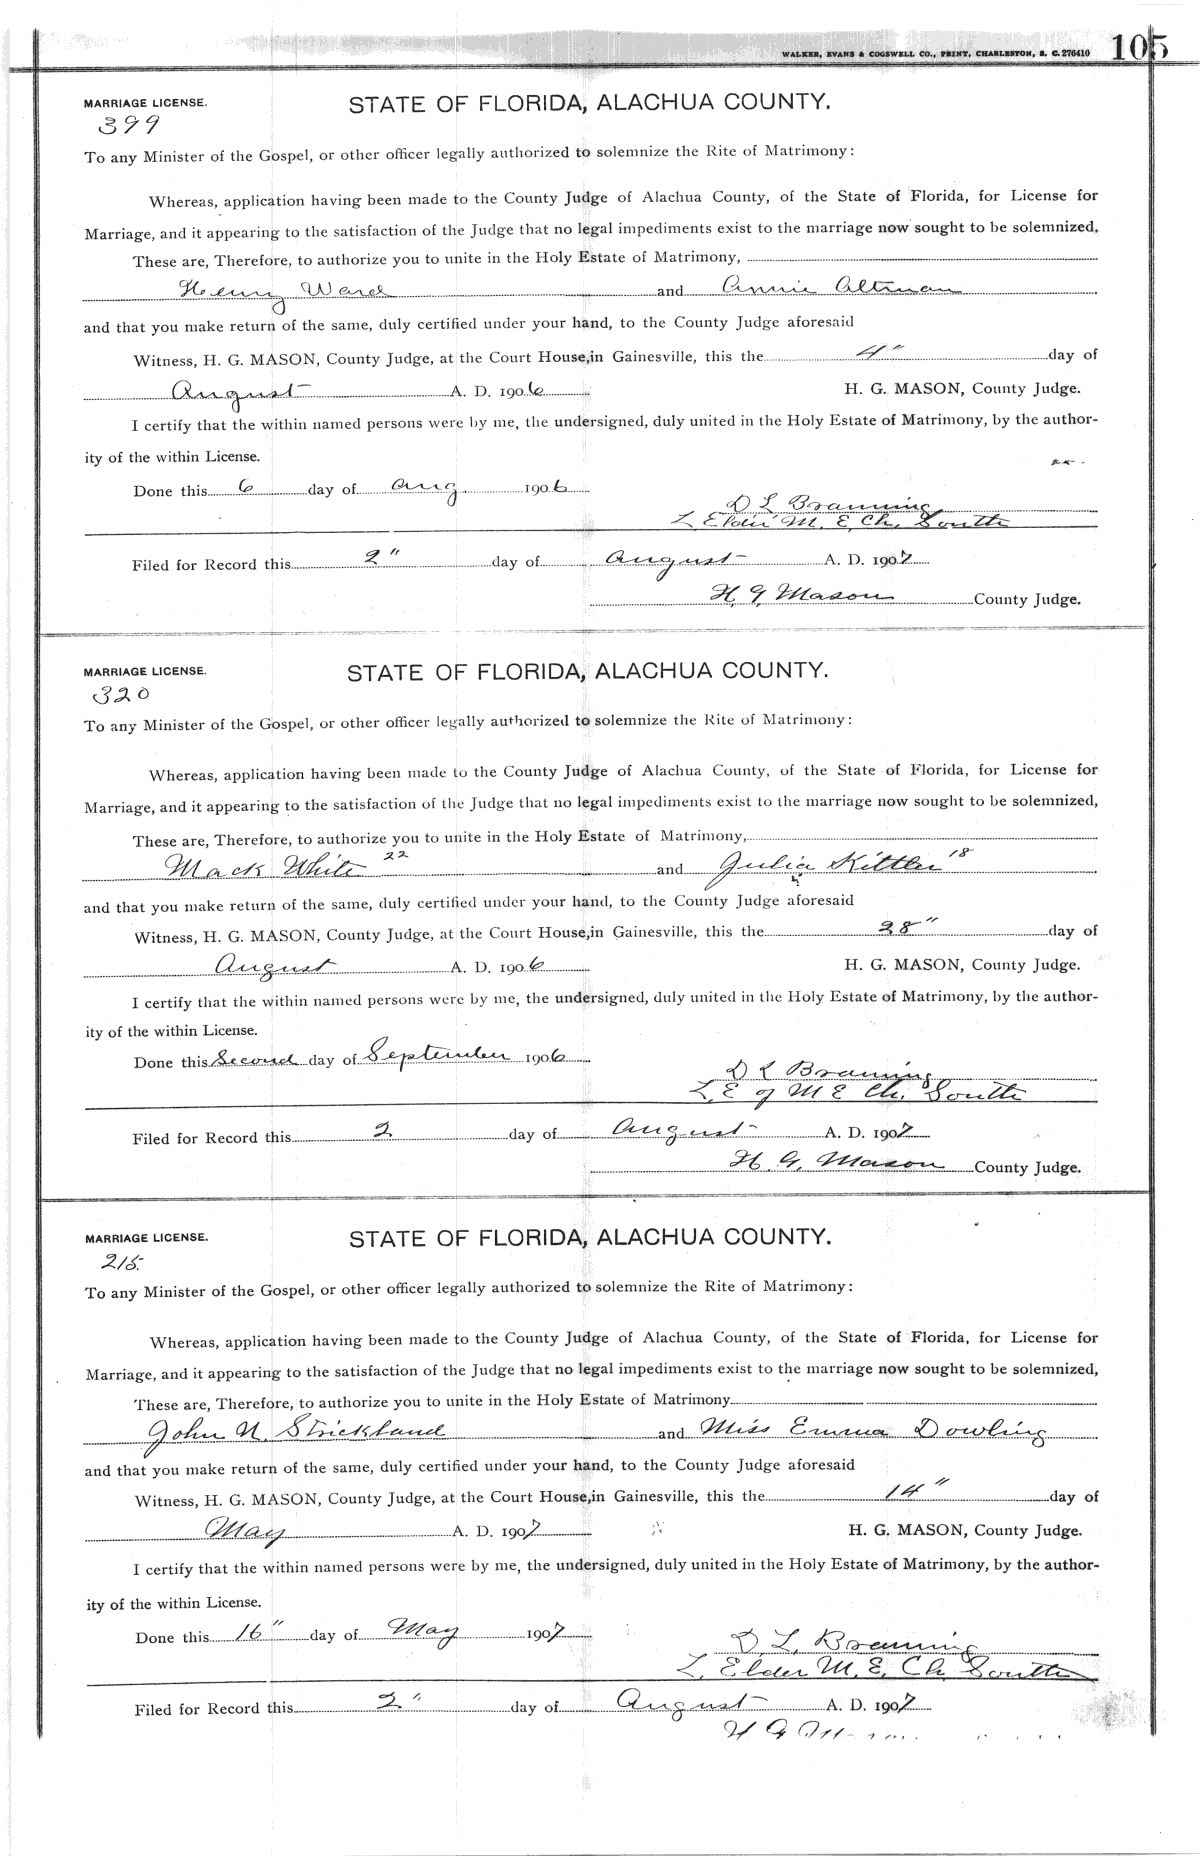 WALKER, EVANS & COGSWELL CO., PRINT, CHARLESTON, S. C. 276410 105
MARRIAGE LICENSE. STATE OF FLORIDA, ALACHUA COUNTY.
399
To any Minister of the Gospel, or other officer legally authorized to solemnize the Rite of Matrimony:
Whereas, application having been made to the County Judge of Alachua County, of the State of Florida, for License for
Marriage, and it appearing to the satisfaction of the Judge that no legal impediments exist to the marriage now sought to be solemnized,
These are, Therefore, to authorize you to unite in the Holy Estate of Matrimony,
Henry Ward and Annie Altman
and that you make return of the same, duly certified under your hand, to the County Judge aforesaid
Witness, H. G. MASON, County Judge, at the Court House, in Gainesville, this the 4" day of
August A. D. 1906 H. G. MASON, County Judge.
I certify that the within named persons were by me, the undersigned, duly united in the Holy Estate of Matrimony, by the author-
ity of the within License.
Done this 6 day of Aug. 1906
D L Branning
L Elder M. E. Ch. South
Filed for Record this 2" day of August A. D. 1907
H. G. Mason County Judge.
MARRIAGE LICENSE. STATE OF FLORIDA, ALACHUA COUNTY.
320
To any Minister of the Gospel, or other officer legally authorized to solemnize the Rite of Matrimony:
Whereas, application having been made to the County Judge of Alachua County, of the State of Florida, for License for
Marriage, and it appearing to the satisfaction of the Judge that no legal impediments exist to the marriage now sought to be solemnized,
These are, Therefore, to authorize you to unite in the Holy Estate of Matrimony,
Mack White 22 and Julia Kittler 18
and that you make return of the same, duly certified under your hand, to the County Judge aforesaid
Witness, H. G. MASON, County Judge, at the Court House, in Gainesville, this the 28" day of
August A. D. 1906 H. G. MASON, County Judge.
I certify that the within named persons were by me, the undersigned, duly united in the Holy Estate of Matrimony, by the author-
ity of the within License.
Done this Second day of September 1906
D L Branning
L. E of M E Ch. South
Filed for Record this 2 day of August A. D. 1907
H. G. Mason County Judge.
MARRIAGE LICENSE. STATE OF FLORIDA, ALACHUA COUNTY.
215.
To any Minister of the Gospel, or other officer legally authorized to solemnize the Rite of Matrimony:
Whereas, application having been made to the County Judge of Alachua County, of the State of Florida, for License for
Marriage, and it appearing to the satisfaction of the Judge that no legal impediments exist to the marriage now sought to be solemnized,
These are, Therefore, to authorize you to unite in the Holy Estate of Matrimony
John N. Strickland and Miss Emma Dowling
and that you make return of the same, duly certified under your hand, to the County Judge aforesaid
Witness, H. G. MASON, County Judge, at the Court House, in Gainesville, this the 14" day of
May A. D. 1907 H. G. MASON, County Judge.
I certify that the within named persons were by me, the undersigned, duly united in the Holy Estate of Matrimony, by the author-
ity of the within License.
Done this 16" day of May 1907
D. L. Branning
L. Elder M. E. Ch South
Filed for Record this 2" day of August A. D. 1907
H G Mason